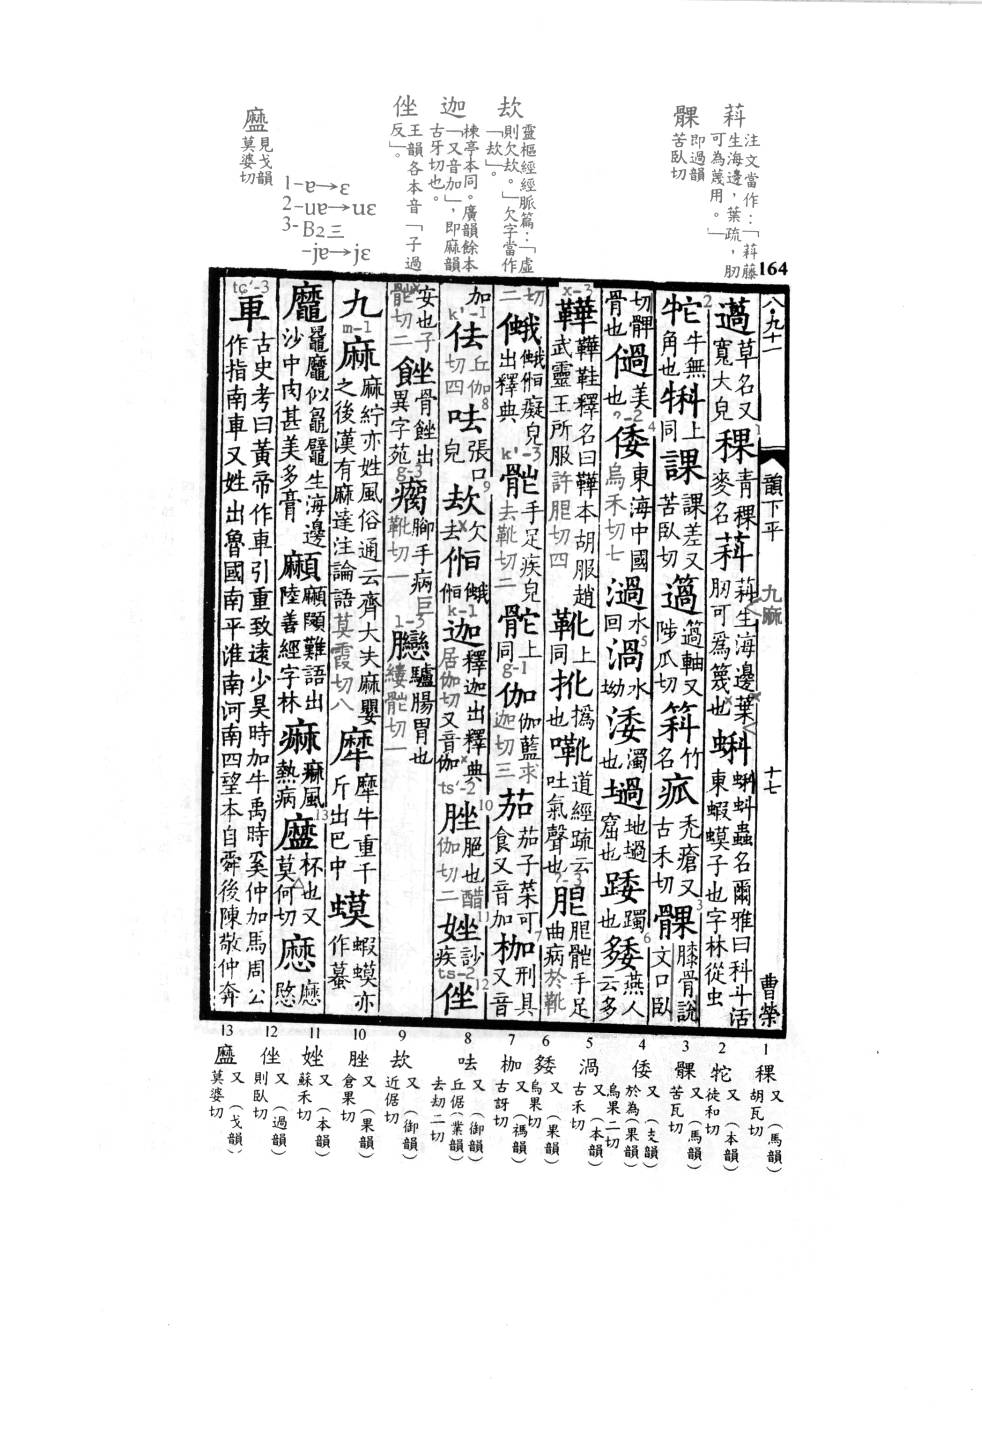 萪
注文當作:「萪藤
生海邊,葉疏,肕
可為篾用。」
髁
即過韻
苦臥切
㰦
靈樞經經脈篇:「虛
則欠㰦。」欠字當作
「㰦」。
迦
楝亭本同。廣韻餘本
「又音加」,即麻韻
古牙切也。
侳
王韻各本音「子過
反」。
1-ɐ→ɛ
2-uɐ→uɛ
3-B2三
-jɐ→jɛ
䯢
見戈韻
莫婆切
164
八·九十一
韻下平
九麻
十七
曹榮
薖草名又寬大皃 稞青稞麥名 萪萪生海邊葉肕可爲篾也 蝌蝌蚪蟲名爾雅曰科斗活東蝦蟆子也字林從虫
牠牛無角也 牁上同 課課差又苦臥切 簻簻軸又陟瓜切 䈑竹名 㼋禿瘡又古禾切 髁膝骨說文口臥
切髀骨也 㗻美也 倭東海中國烏禾切七 濄水回 渦水坳 涹濁也 堝地堝窟也 踒躅也 䰀燕人云多
鞾鞾鞋釋名曰鞾本胡服趙武靈王所服許䏢切四 靴上同 㧨撝也 嗺道經疏云吐氣聲也 䏢䏢䯞手足曲病於靴
切二 㒋㒋㑝癡皃出釋典 䯞手足疾皃去靴切二 骻上同 伽伽藍求迦切三 茄茄子菜可食又音加 枷刑具又音
加 佉丘伽切四 呿張口皃 㰦欠去 㑝㒋㑝 迦釋迦出釋典居伽切又音伽 脞脃也醋伽切二 㛗訬疾 侳
安也子䯞切二 䯿骨䯿出異字苑 瘸腳手病巨靴切一 䑌驢腸胃也縷䯞切一
九麻麻紵亦姓風俗通云齊大夫麻嬰之後漢有麻達注論語莫霞切八 犘犘牛重千斤出巴中 蟆蝦蟆亦作蟇
䵋鼊䵋似龜鼊生海邊沙中肉甚美多膏 䫫䫫䫫難語出陸善經字林 痲痲風熱病 䯢杯也又莫何切 㦄㦄愍
車古史考曰黃帝作車引重致遠少昊時加牛禹時奚仲加馬周公作指南車又姓出魯國南平淮南河南四望本自舜後陳敬仲奔
1 稞 又胡瓦切(馬韻)
2 牠 又徒和切(本韻)
3 髁 又苦瓦切(馬韻)
4 倭 又於為(支韻)烏果二切(果韻)
5 渦 又古禾切(本韻)
6 䰀 又烏果切(果韻)
7 枷 又古訝切(禡韻)
8 呿 又丘倨(御韻)去劫二切(業韻)
9 㰦 又近倨切(御韻)
10 脞 又倉果切(果韻)
11 㛗 又蘇禾切(本韻)
12 侳 又則臥切(過韻)
13 䯢 又莫婆切(戈韻)